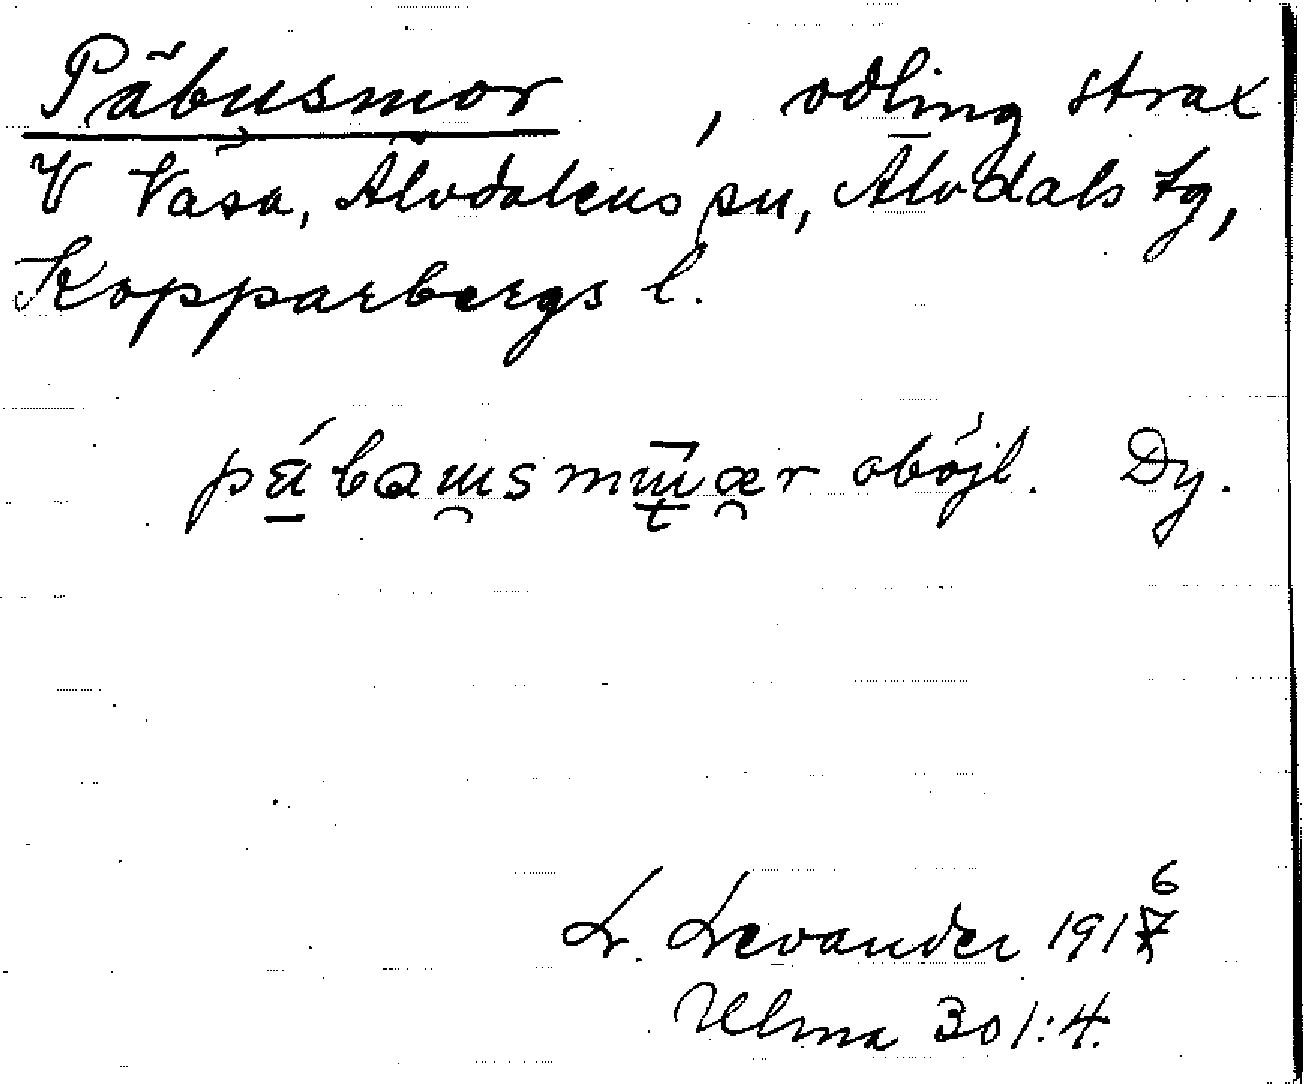 Päbusmor, odling strax
V Våsa, Älvdalens sn, Älvdals tg,
Kopparbergs l.
obójl. Dy.
L. Levander 1916
Ulma 301:4.